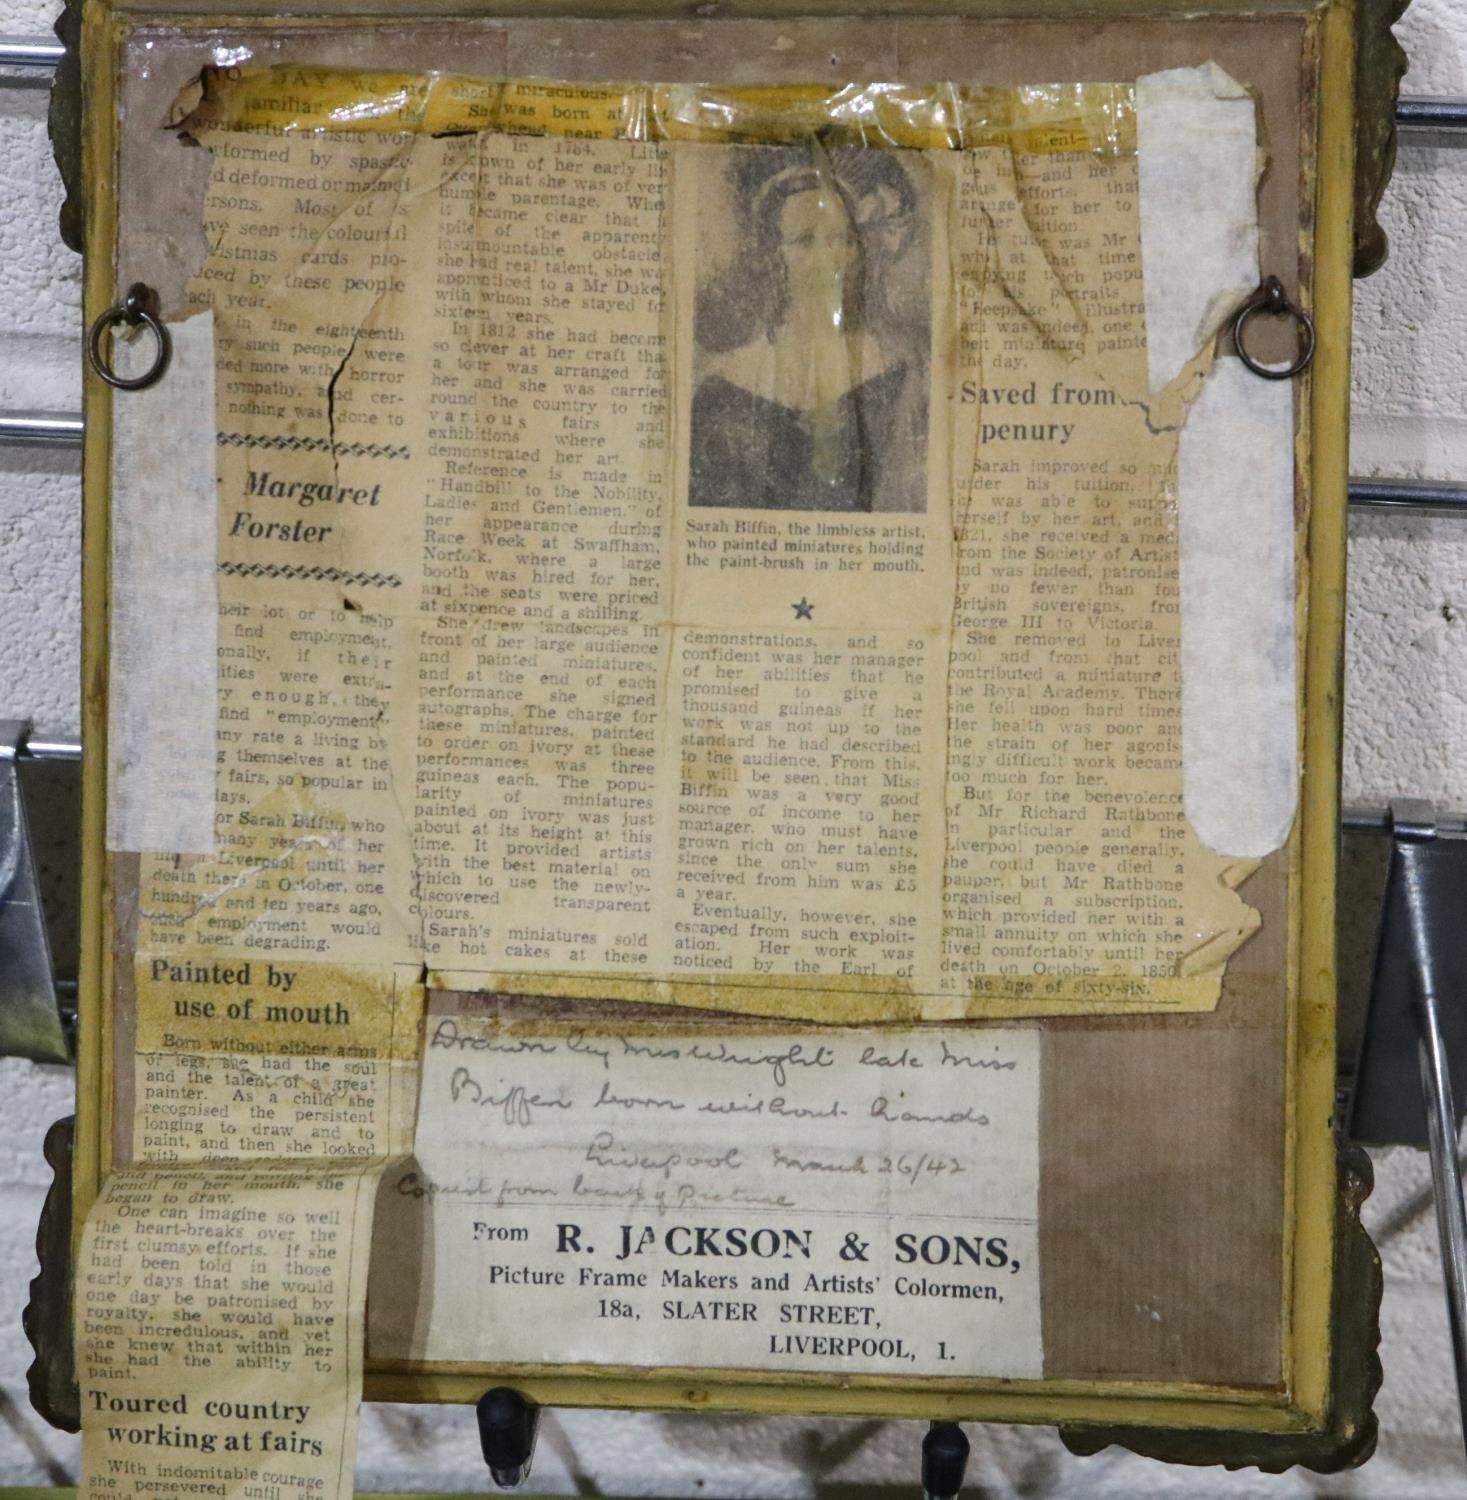 TO DAY we are
familiar with the
wonderful artistic wor
rformed by spastic
d deformed or maimed
ersons. Most of us
ve seen the colourful
ristmas cards pro-
uced by these people
ach year.
in the eighteenth
ry such people were
ded more with horror
sympathy, and cer-
nothing was done to
Margaret
Forster
heir lot or to help
find employment.
onally, if their
ities were extra-
ry enough, they
find "employment"
any rate a living by
g themselves at the
fairs, so popular in
days.
or Sarah Biffin, who
many years of her
in Liverpool until her
death there in October, one
hundred and ten years ago,
such employment would
have been degrading.
Painted by
use of mouth
Born without either arms
or legs, she had the soul
and the talent of a great
painter. As a child she
recognised the persistent
longing to draw and to
paint, and then she looked
with deep
and pencil, and putting the
pencil in her mouth, she
began to draw.
One can imagine so well
the heart-breaks over the
first clumsy efforts. If she
had been told in those
early days that she would
one day be patronised by
royalty, she would have
been incredulous, and yet
she knew that within her
she had the ability to
paint.
Toured country
working at fairs
With indomitable courage
she persevered until she
short miraculous.
She was born at East
near
in 1784. Little
is known of her early life
except that she was of very
humble parentage. When
it became clear that in
spite of the apparently
insurmountable obstacle,
she had real talent, she was
apprenticed to a Mr Duke,
with whom she stayed for
sixteen years.
In 1812 she had become
so clever at her craft that
a tour was arranged for
her and she was carried
round the country to the
various fairs and
exhibitions where she
demonstrated her art.
Reference is made in
"Handbill to the Nobility,
Ladies and Gentlemen," of
her appearance during
Race Week at Swaffham,
Norfolk, where a large
booth was hired for her,
and the seats were priced
at sixpence and a shilling.
She drew landscapes in
front of her large audience
and painted miniatures,
and at the end of each
performance she signed
autographs. The charge for
these miniatures, painted
to order on ivory at these
performances was three
guineas each. The popu-
larity of miniatures
painted on ivory was just
about at its height at this
time. It provided artists
with the best material on
which to use the newly-
discovered transparent
colours.
Sarah's miniatures sold
like hot cakes at these
Sarah Biffin, the limbless artist,
who painted miniatures holding
the paint-brush in her mouth.
★
demonstrations, and so
confident was her manager
of her abilities that he
promised to give a
thousand guineas if her
work was not up to the
standard he had described
to the audience. From this,
it will be seen that Miss
Biffin was a very good
source of income to her
manager, who must have
grown rich on her talents,
since the only sum she
received from him was £5
a year.
Eventually, however, she
escaped from such exploit-
ation. Her work was
noticed by the Earl of
talent—
than
of —and her c
geous efforts, that
arrange for her to
further tuition
Her tutor was Mr
who at that time
enjoying much popu
for his portraits
"Keepsake" illustra
and was indeed, one o
best miniature painte
the day.
Saved from
penury
Sarah improved so muc
under his tuition,
she was able to supp
herself by her art, and
1821, she received a med
from the Society of Artist
and was indeed, patronise
by no fewer than fou
British sovereigns, from
George III to Victoria.
She removed to Liver
pool and from that cit
contributed a miniature t
the Royal Academy. There
she fell upon hard times
Her health was poor and
the strain of her agonis-
ingly difficult work became
too much for her.
But for the benevolence
of Mr Richard Rathbone
in particular and the
Liverpool people generally,
she could have died a
pauper, but Mr Rathbone
organised a subscription,
which provided her with a
small annuity on which she
lived comfortably until her
death on October 2, 1850
at the age of sixty-six.
Drawn by Mrs Wright late Miss
Biffen born without hands
Liverpool March 26/42
Copied from back of Picture
From R. JACKSON & SONS,
Picture Frame Makers and Artists' Colormen,
18a, SLATER STREET,
LIVERPOOL, 1.